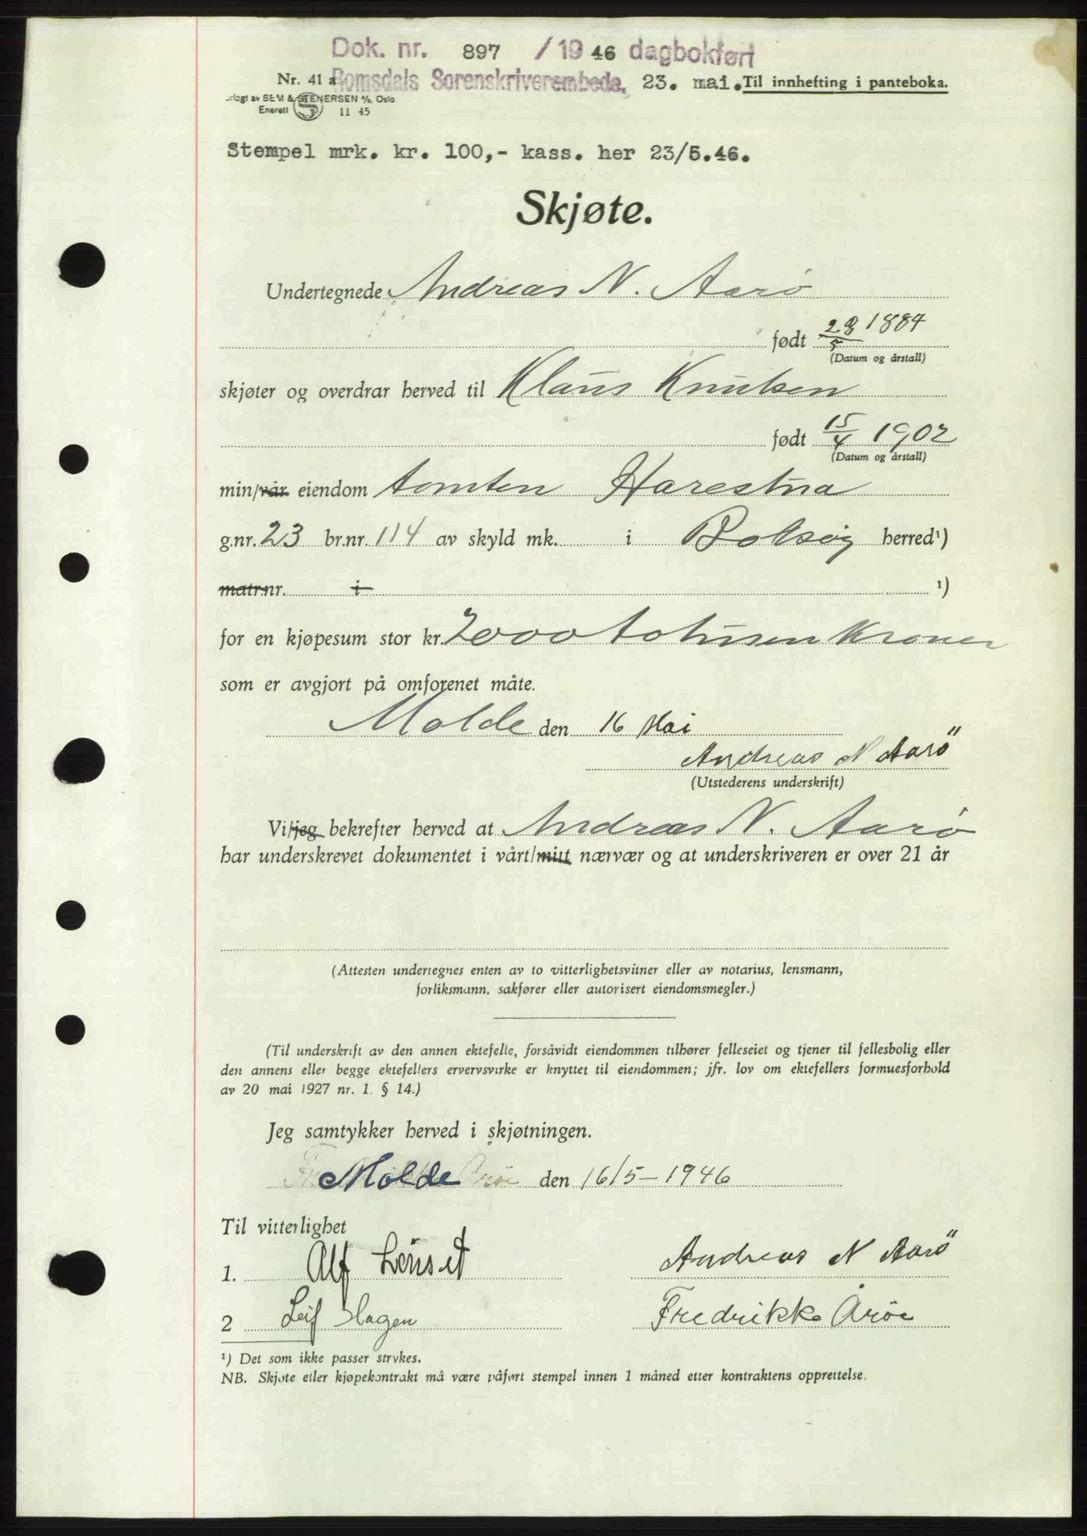 Dok. nr. 897 / 19 46 dagbokført
Nr. 41 a Romsdals Sorenskriverembede, 23. mai. Til innhefting i panteboka.
SEM & STENERSEN A/S, Oslo
Enerett S 11 45
Stempel mrk. kr. 100,- kass. her 23/5.46.
Skjøte.
Undertegnede Andreas N. Aarø
født 28/5 1884
(Datum og årstall)
skjøter og overdrar herved til Klaus Knutsen
født 15/4 1902
(Datum og årstall)
min/vår eiendom tomten Harestua
g.nr. 23 br.nr. 114 av skyld mk. i Bolsøy herred¹)
matr.nr. i ¹)
for en kjøpesum stor kr. 2000 totusen Kroner
som er avgjort på omforenet måte.
Molde den 16 Mai
Andreas N Aarö
(Utstederens underskrift)
Vi/jeg bekrefter herved at Andreas N. Aarø
har underskrevet dokumentet i vårt/mitt nærvær og at underskriveren er over 21 år
(Attesten undertegnes enten av to vitterlighetsvitner eller av notarius, lensmann,
forliksmann, sakfører eller autorisert eiendomsmegler.)
(Til underskrift av den annen ektefelle, forsåvidt eiendommen tilhører felleseiet og tjener til fellesbolig eller
den annens eller begge ektefellers ervervsvirke er knyttet til eiendommen; jfr. lov om ektefellers formuesforhold
av 20 mai 1927 nr. 1. § 14.)
Jeg samtykker herved i skjøtningen.
Molde den 16/5-1946
Til vitterlighet
1. Alf Lønset Andreas N Aarö
2 Leif Hagen Fredrikke Årøe
¹) Det som ikke passer strykes.
NB. Skjøte eller kjøpekontrakt må være påført stempel innen 1 måned etter kontraktens opprettelse.